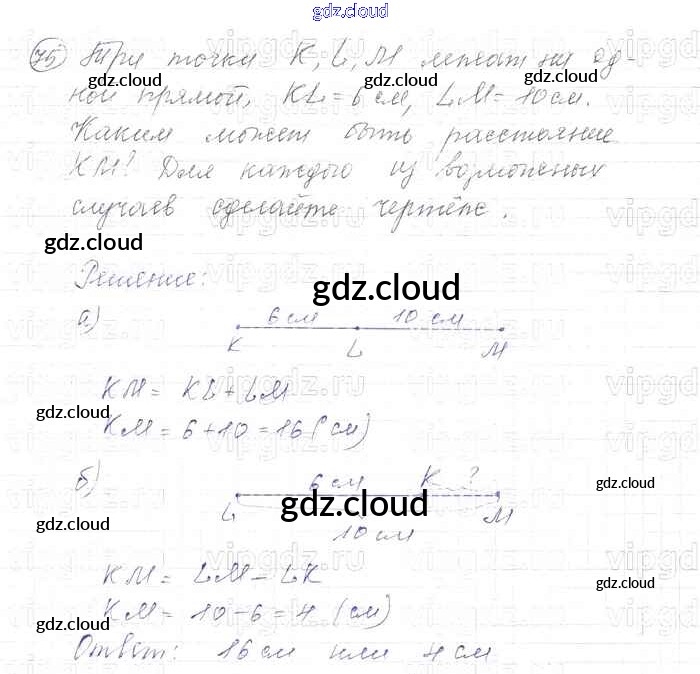 gdz.cloud
75 Три точки K, L, M лежат на од-
ной прямой, KL = 6 см, LM = 10 см.
Каким может быть расстояние
KM? Для каждого из возможных
случаев сделайте чертёж.
Решение:
а) 6 см 10 см
K L M
KM = KL + LM
KM = 6 + 10 = 16 (см)
б) 6 см K ?
L M
10 см
KM = LM - LK
KM = 10 - 6 = 4 (см)
Ответ: 16 см или 4 см
gdz.cloud
gdz.cloud
gdz.cloud
gdz.cloud
gdz.cloud
gdz.cloud
gdz.cloud
gdz.cloud
gdz.cloud
gdz.cloud
gdz.cloud
gdz.cloud